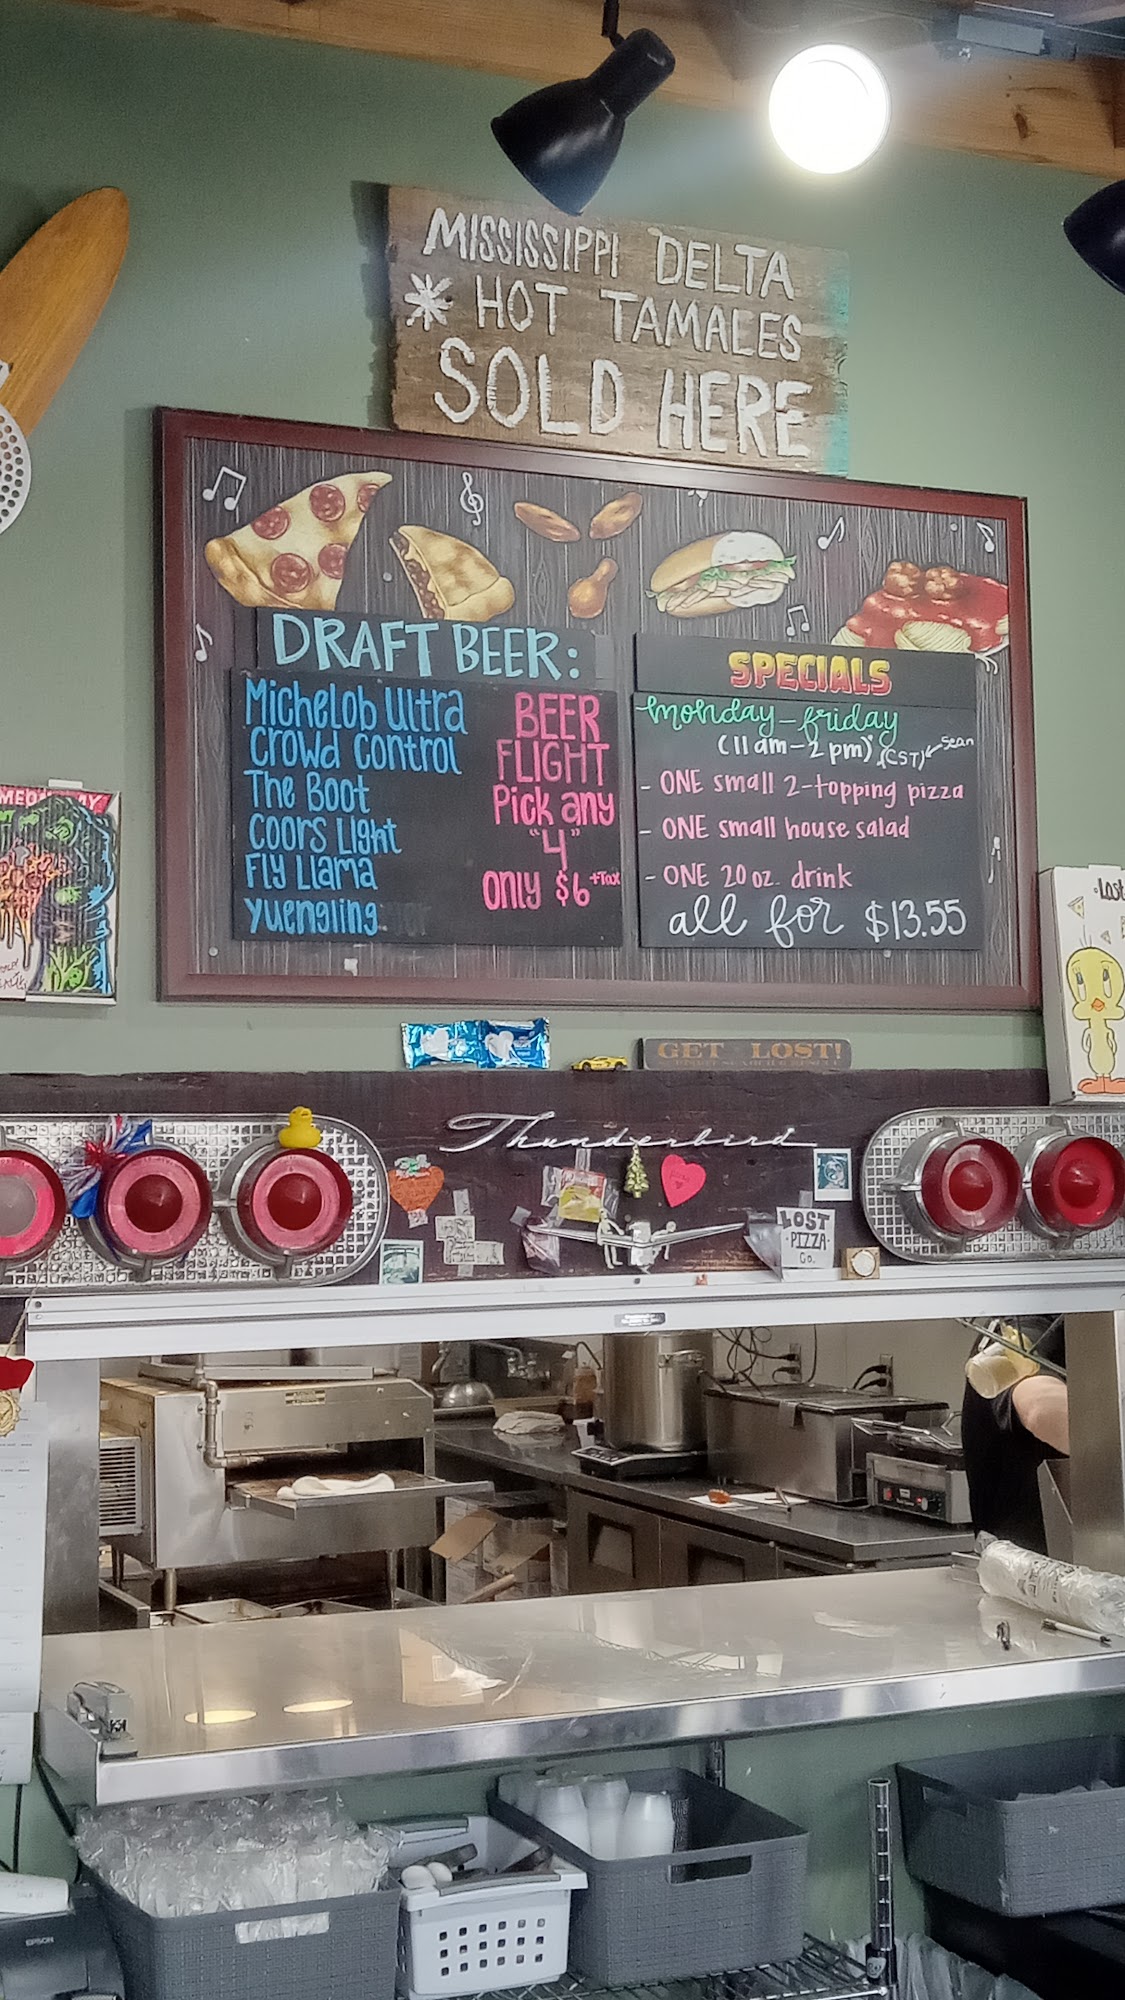 MISSISSIPPI DELTA
* HOT TAMALES
SOLD HERE
DRAFT BEER:
Michelob Ultra
Crowd Control
The Boot
Coors Light
Fly Llama
Yuengling
BEER
FLIGHT
Pick any
"4"
only $6 +Tax
SPECIALS
Monday-friday
(11 am - 2 pm) (CST) Sean
- ONE small 2-topping pizza
- ONE small house salad
- ONE 20 oz. drink
all for $13.55
Lost
GET LOST!
Thunderbird
LOST
PIZZA
Co.
EPSON